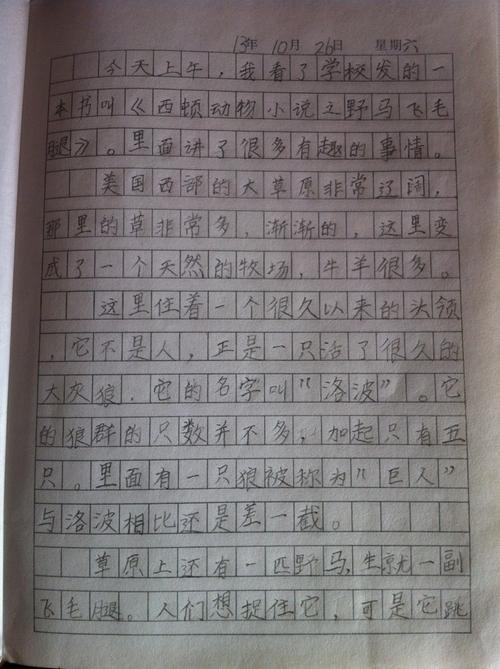 13年 10月 26日 星期六
今天上午，我看了学校发的一
本书叫《西顿动物小说之野马飞毛
腿》。里面讲了很多有趣的事情。
美国西部的大草原非常辽阔，
那里的草非常多，渐渐的，这里变
成了一个天然的牧场，牛羊很多。
这里住着一个很久以来的头领
，它不是人，正是一只活了很久的
大灰狼．它的名字叫“洛波”。它
的狼群的只数并不多，加起只有五
只。里面有一只狼被称为“巨人”
与洛波相比还是差一截。
草原上还有一匹野马，生就一副
飞毛腿。人们想捉住它，可是它跳